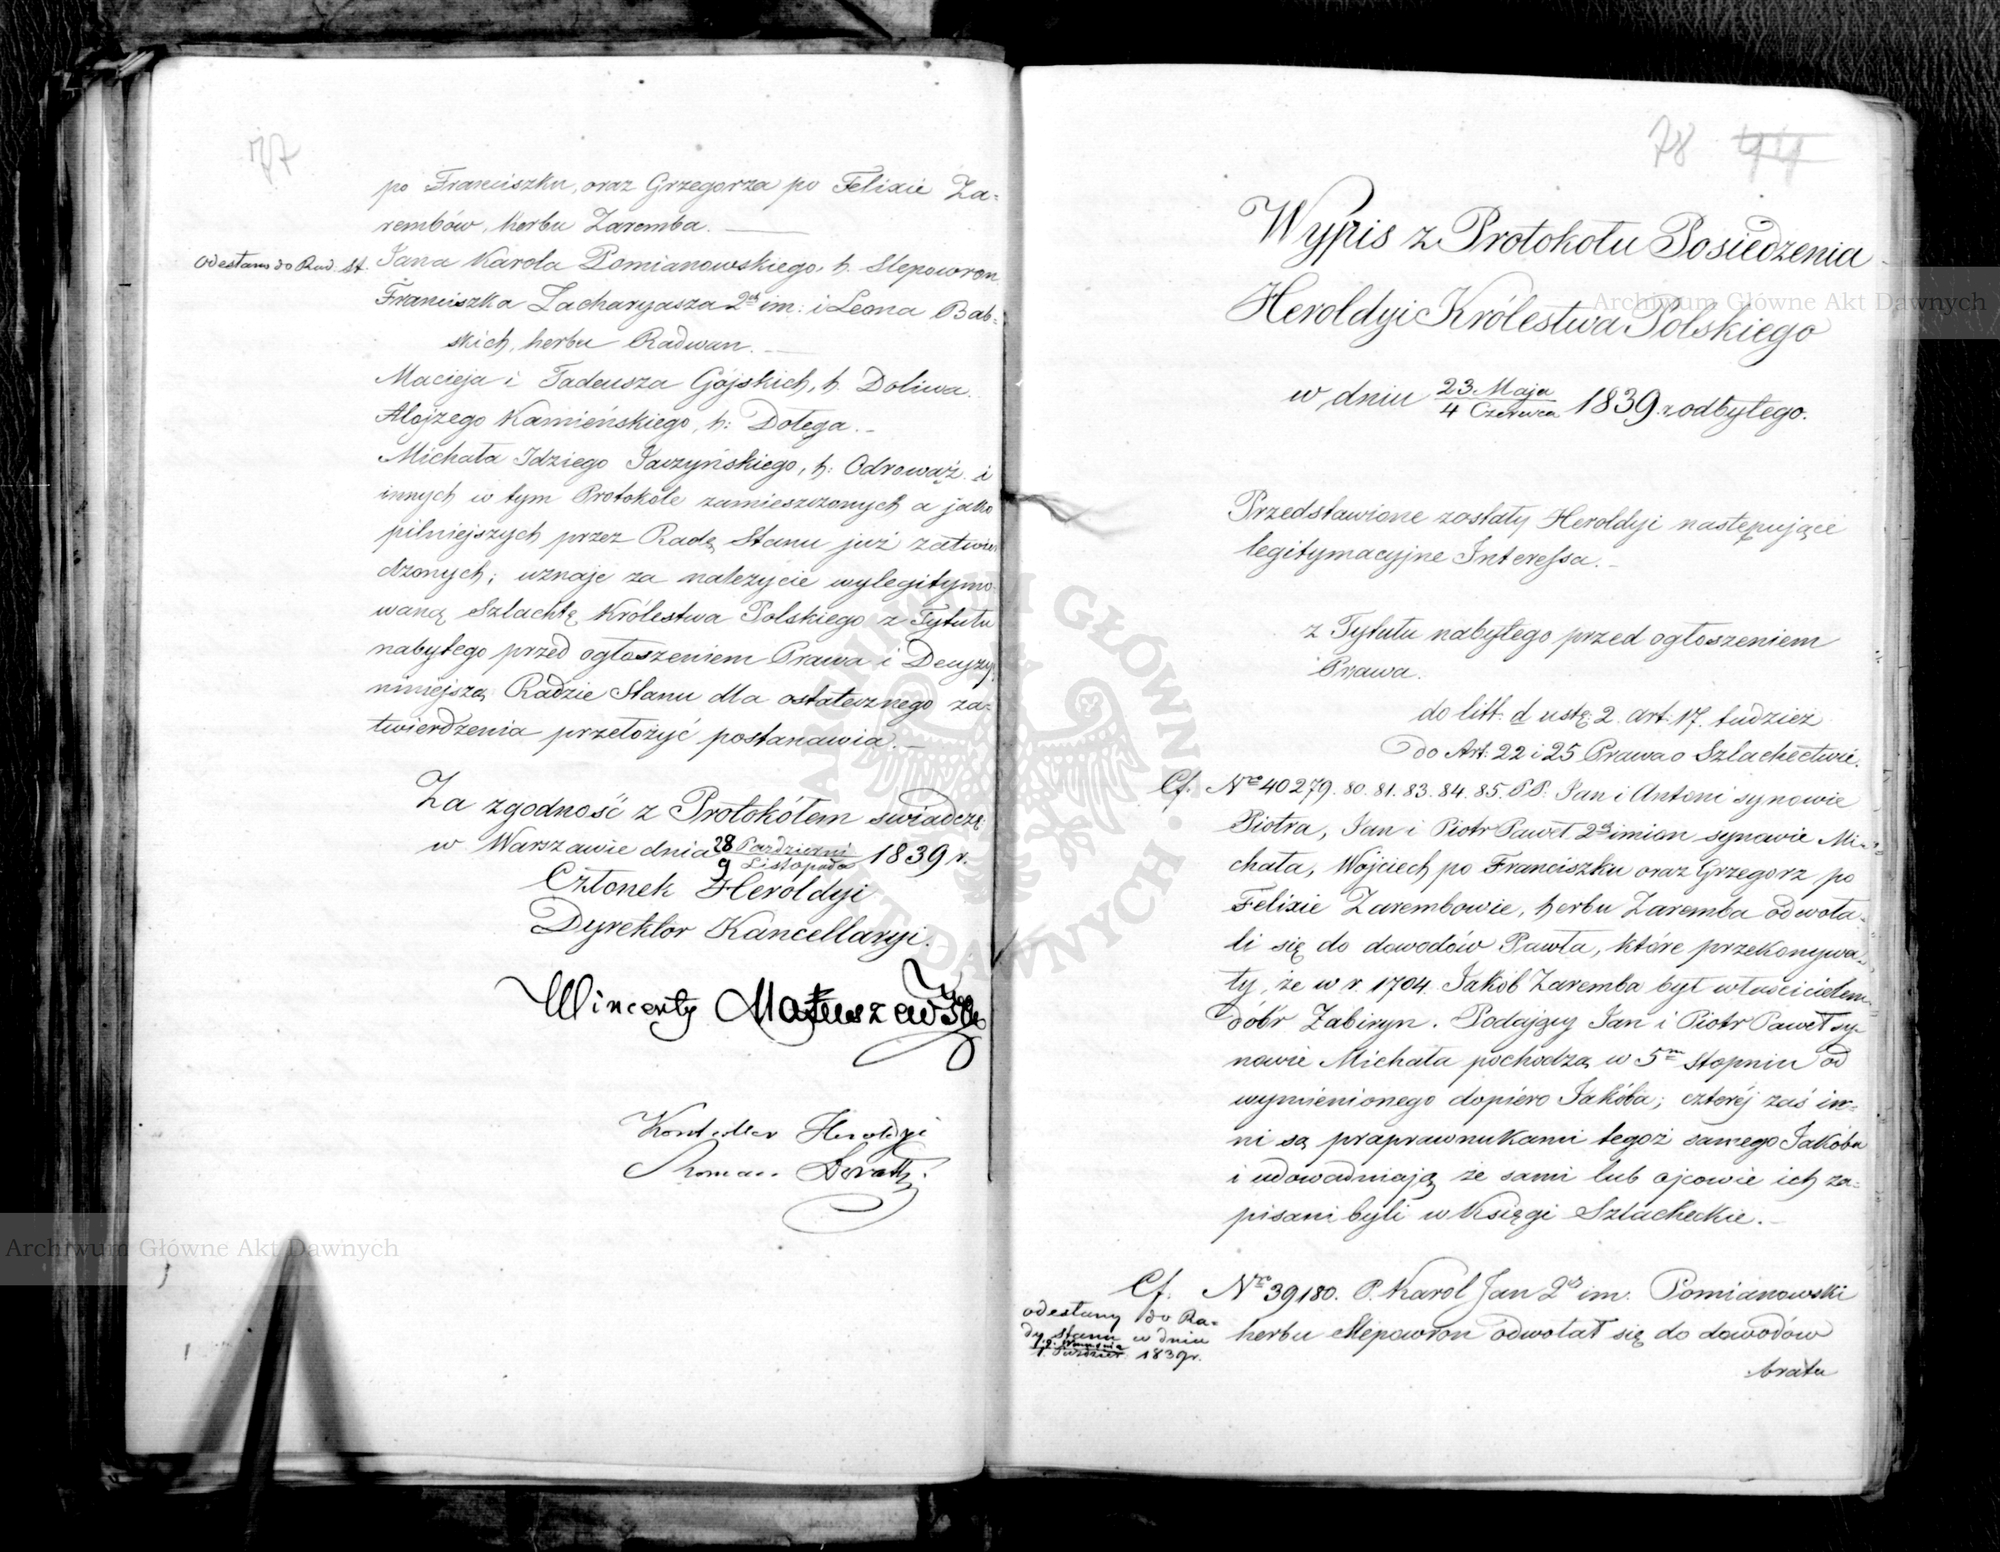 77
po Franciszku, oraz Grzegorza po Felixie Za-
rembów, herbu Zaremba.
odesłano do Rad. St.
Jana Karola Pomianowskiego, h. Slepowron
Franciszka Zacharyasza 2ch im: i Leona Bab-
skich, herbu Radwan.
Macieja i Tadeusza Gójskich, h. Doliwa.
Alojzego Kamieńskiego, h: Dołęga.
Michała Idziego Jaczyńskiego, h: Odrowąż i
innych w tym Protokóle zamieszczonych a jako
pilniejszych przez Radę Stanu już zatwier
dzonych; uznaje za należycie wylegitymo-
waną Szlachtę Królestwa Polskiego z Tytułu
nabytego przed ogłoszeniem Prawa i Decyzyę
niniejszą Radzie Stanu dla ostatecznego za-
twierdzenia przełożyć postanawia.
Za zgodność z Protokółem świadczę
w Warszawie dnia 28 Październi / 9 Listopada 1839 r.
Członek Heroldyi
Dyrektor Kancellaryi.
Wincenty Matuszewski
Kontroller Heroldyi
Roman
78 44
Wypis z Protokołu Posiedzenia
Heroldyi Królestwa Polskiego
w dniu 23 Maja / 4 Czerwca 1839 r. odbytego.
Przedstawione zostały Heroldyi następujące
legitymacyjne Interessa.
z Tytułu nabytego przed ogłoszeniem
Prawa.
do litt. d ustę. 2. art: 17. tudzież
do Art: 22 i 25 Prawa o Szlachectwie.
Cf. Nro 40279. 80. 81. 83. 84. 85. PP. Jan i Antoni synowie
Piotra, Jan i Piotr Paweł 2ch imion synowie Mi-
chała, Wojciech po Franciszku oraz Grzegorz po
Felixie Zarembowie, herbu Zaremba odwoła-
li się do dowodów Pawła, które przekonywa-
ły, że w r. 1704. Jakób Zaremba był właścicielem
dóbr Zabiryn. Podający Jan i Piotr Paweł sy-
nowie Michała pochodzą w 5m stopniu od
wymienionego dopiero Jakóba; czterej zaś in-
ni są praprawnukami tegoż samego Jakóba
i udowadniają że sami lub ojcowie ich za-
pisani byli w Księgi Szlacheckie.
Cf. Nro 39180. P. Karol Jan 2ch im. Pomianowski
herbu Slepowron odwołał się do dowodów
brata
odesłany do Ra-
dy Stanu w dniu
1. Paździer. 1839 r.
Archiwum Główne Akt Dawnych
Archiwum Główne Akt Dawnych
ARCHIWUM GŁÓWNE AKT DAWNYCH